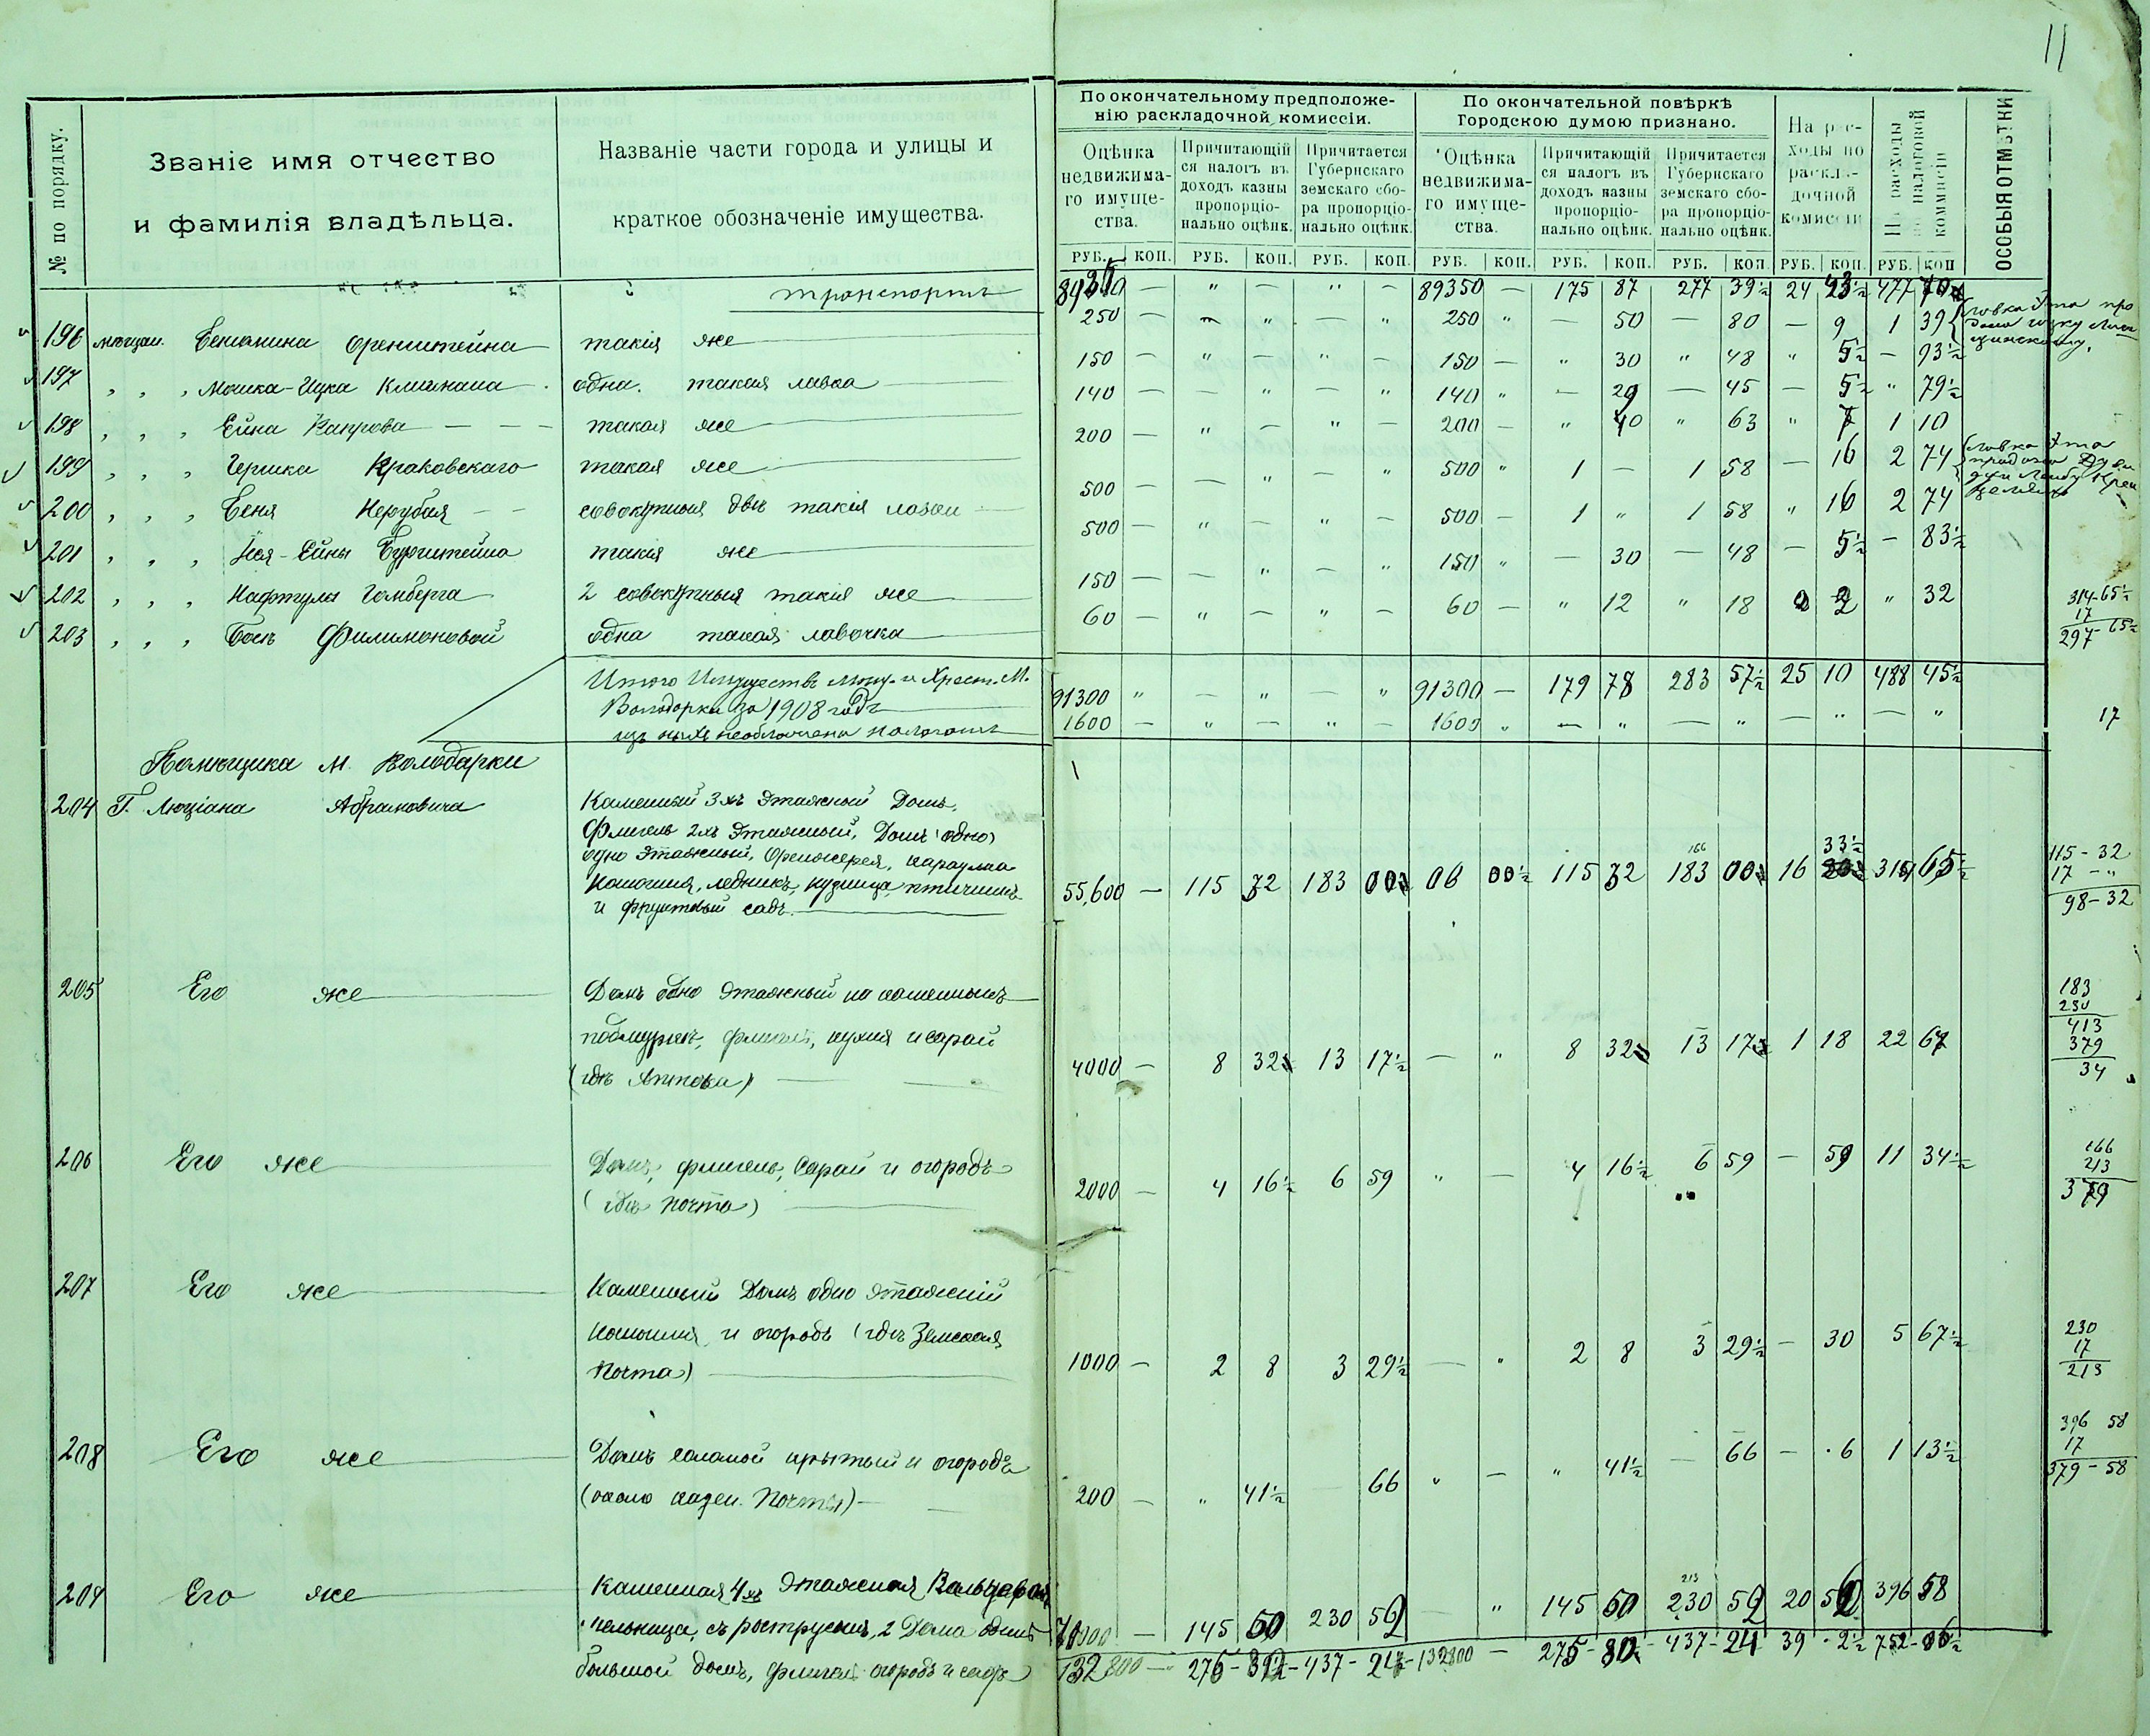 11
№ по порядку.
Званіе имя отчество
и фамилія владѣльца.
Названіе части города и улицы и
краткое обозначеніе имущества.
По окончательному предположе-
нію раскладочной комиссіи.
По окончательной повѣркѣ
Городскою думою признано.
Оцѣнка
недвижима-
го имуще-
ства.
Причитающій
ся налогъ въ
доходъ казны
пропорціо-
нально оцѣнк.
Причитается
Губернскаго
земскаго сбо-
ра пропорціо-
нально оцѣнк.
Оцѣнка
недвижима-
го имуще-
ства.
Причитающій
ся налогъ въ
доходъ казны
пропорціо-
нально оцѣнк.
Причитается
Губернскаго
земскаго сбо-
ра пропорціо-
нально оцѣнк.
На рас-
ходы по
раскла-
дочной
комиссіи
На расходы
по налоговой
коммисіи
ОСОБЫЯ ОТМѢТКИ
РУБ. КОП. РУБ. КОП. РУБ. КОП. РУБ. КОП. РУБ. КОП. РУБ. КОП. РУБ. КОП. РУБ. КОП
транспортъ 89350 — " — " — 89350 — 175 87 277 39½ 24 477
196 мѣщан. Оренштейна такія же 250 — — " — " 250 " — 50 — 80 — 9 1 39
Лавка эта про
197 " " " Мошка-Ицка одна такая лавка 150 — " — " — 150 — " 30 " 48 " 5½ — 93½
198 " " " Ейна Капрова — — — такая же 140 — — " — " 140 " — 29 — 45 — 5½ " 79½
199 " " " Гершка Краковскаго такая же 200 — " — " — 200 — " 40 " 63 " 7 1 10
200 " " " Беня Нерубая — — совокупныя двѣ такія лавки 500 — — " — " 500 " 1 — 1 58 — 16 2 74
Лавка эта
продана
201 " " " такія же 500 — " — " — 500 — 1 " 1 58 " 16 2 74
202 " " " Нафтулы Гомберга 2 совокупныя такія же 150 — — " — " 150 " — 30 — 48 — 5½ — 83½
203 " " " Филимоновой одна такая лавочка 60 — " — " — 60 — " 12 " 18 2 " 32
314-65½
17
297-65½
Итого Имуществъ мѣщ. и Крест. М.
Володарки за 1908 годъ 91300 " — " — " 91300 — 179 78 283 57½ 25 10 488 45½
изъ нихъ необложена налогомъ 1600 — " — " — 1600 " — " — " — " — "
17
Помѣщика М. Володарки
204 Г. Люціана Абрамовича Каменный 3хъ этажный Домъ,
Флигель 2хъ этажный, Домъ одно
одно этажный, Оренжерея, караулка
Конюшня, ледникъ, кузница, птичникъ
и фруктовый садъ. 55,600 — 115 32 183 00½ 115 32 183 00½ 16 33½ 314 65½
166
115-32
17 - "
98-32
205 Его же Домъ одно этажный на каменномъ
флигель, кухня и сарай
(гдѣ Аптека) 4000 — 8 32 13 17½ — " 8 32 13 17½ 1 18 22 67
183
230
413
379
34
206 Его же Домъ, флигель, Сарай и огородъ
(гдѣ почта) 2000 — 4 16½ 6 59 " — 4 16½ 6 59 — 59 11 34½
166
213
379
207 Его же Каменный Домъ одно этажній
конюшня и огородъ (гдѣ Земская
Почта) 1000 — 2 8 3 29½ — " 2 8 3 29½ — 30 5 67½
230
17
213
208 Его же Домъ соломой крытый и огородъ
(около казен. Почты) — 200 — " 41½ — 66 " — " 41½ — 66 — 6 1 13½
396 58
17
379-58
209 Его же Каменная 4хъ этажная Вальцевая
мельница, 2 Дома одинъ
большой домъ, флигель огородъ и садъ 70000 — 145 60 230 59 — " 145 60 230 59 20 396 58
213
132800 — 437 — 132800 — 437-24 39 - 2½ 752-06½